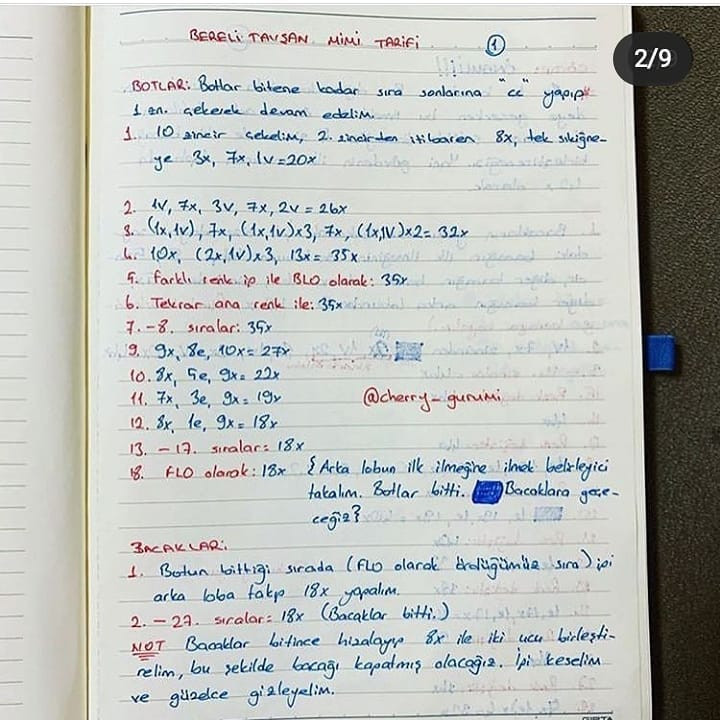 BERELİ TAVŞAN MİMİ TARİFİ 1
2/9
BOTLAR: Botlar bitene kadar sıra sonlarına "cc" yapıp
1 zn. çekerek devam edelim.
1. 10 zincir çekelim, 2. zincirden itibaren 8x, tek sık iğne-
ye 3x, 7x, 1v=20x
2. 1v, 7x, 3v, 7x, 2v = 26x
3. (1x,1v), 7x, (1x,1v)x3, 7x, (1x,1v)x2= 32x
4. 10x, (2x,1v)x3, 13x= 35x
5. Farklı renk ip ile BLO olarak: 35x
6. Tekrar ana renk ile: 35x
7. -8. sıralar: 35x
9. 9x, 8e, 10x= 27x
10. 8x, 5e, 9x= 22x
11. 7x, 3e, 9x= 19x
@cherry_gurumi
12. 8x, 1e, 9x= 18x
13. - 17. sıralar= 18x
18. FLO olarak: 18x {Arka lobun ilk ilmeğine ilmek belirleyici
takalım. Botlar bitti. Bacaklara geçe-
ceğiz}
BACAKLAR:
1. Botun bittiği sırada (FLO olarak ördüğümüz sıra) ipi
arka loba takıp 18x yapalım.
2. - 27. sıralar= 18x (Bacaklar bitti.)
NOT Bacaklar bitince hizalayıp 8x ile iki ucu birleşti-
relim, bu şekilde bacağı kapatmış olacağız. İpi keselim
ve güzelce gizleyelim.